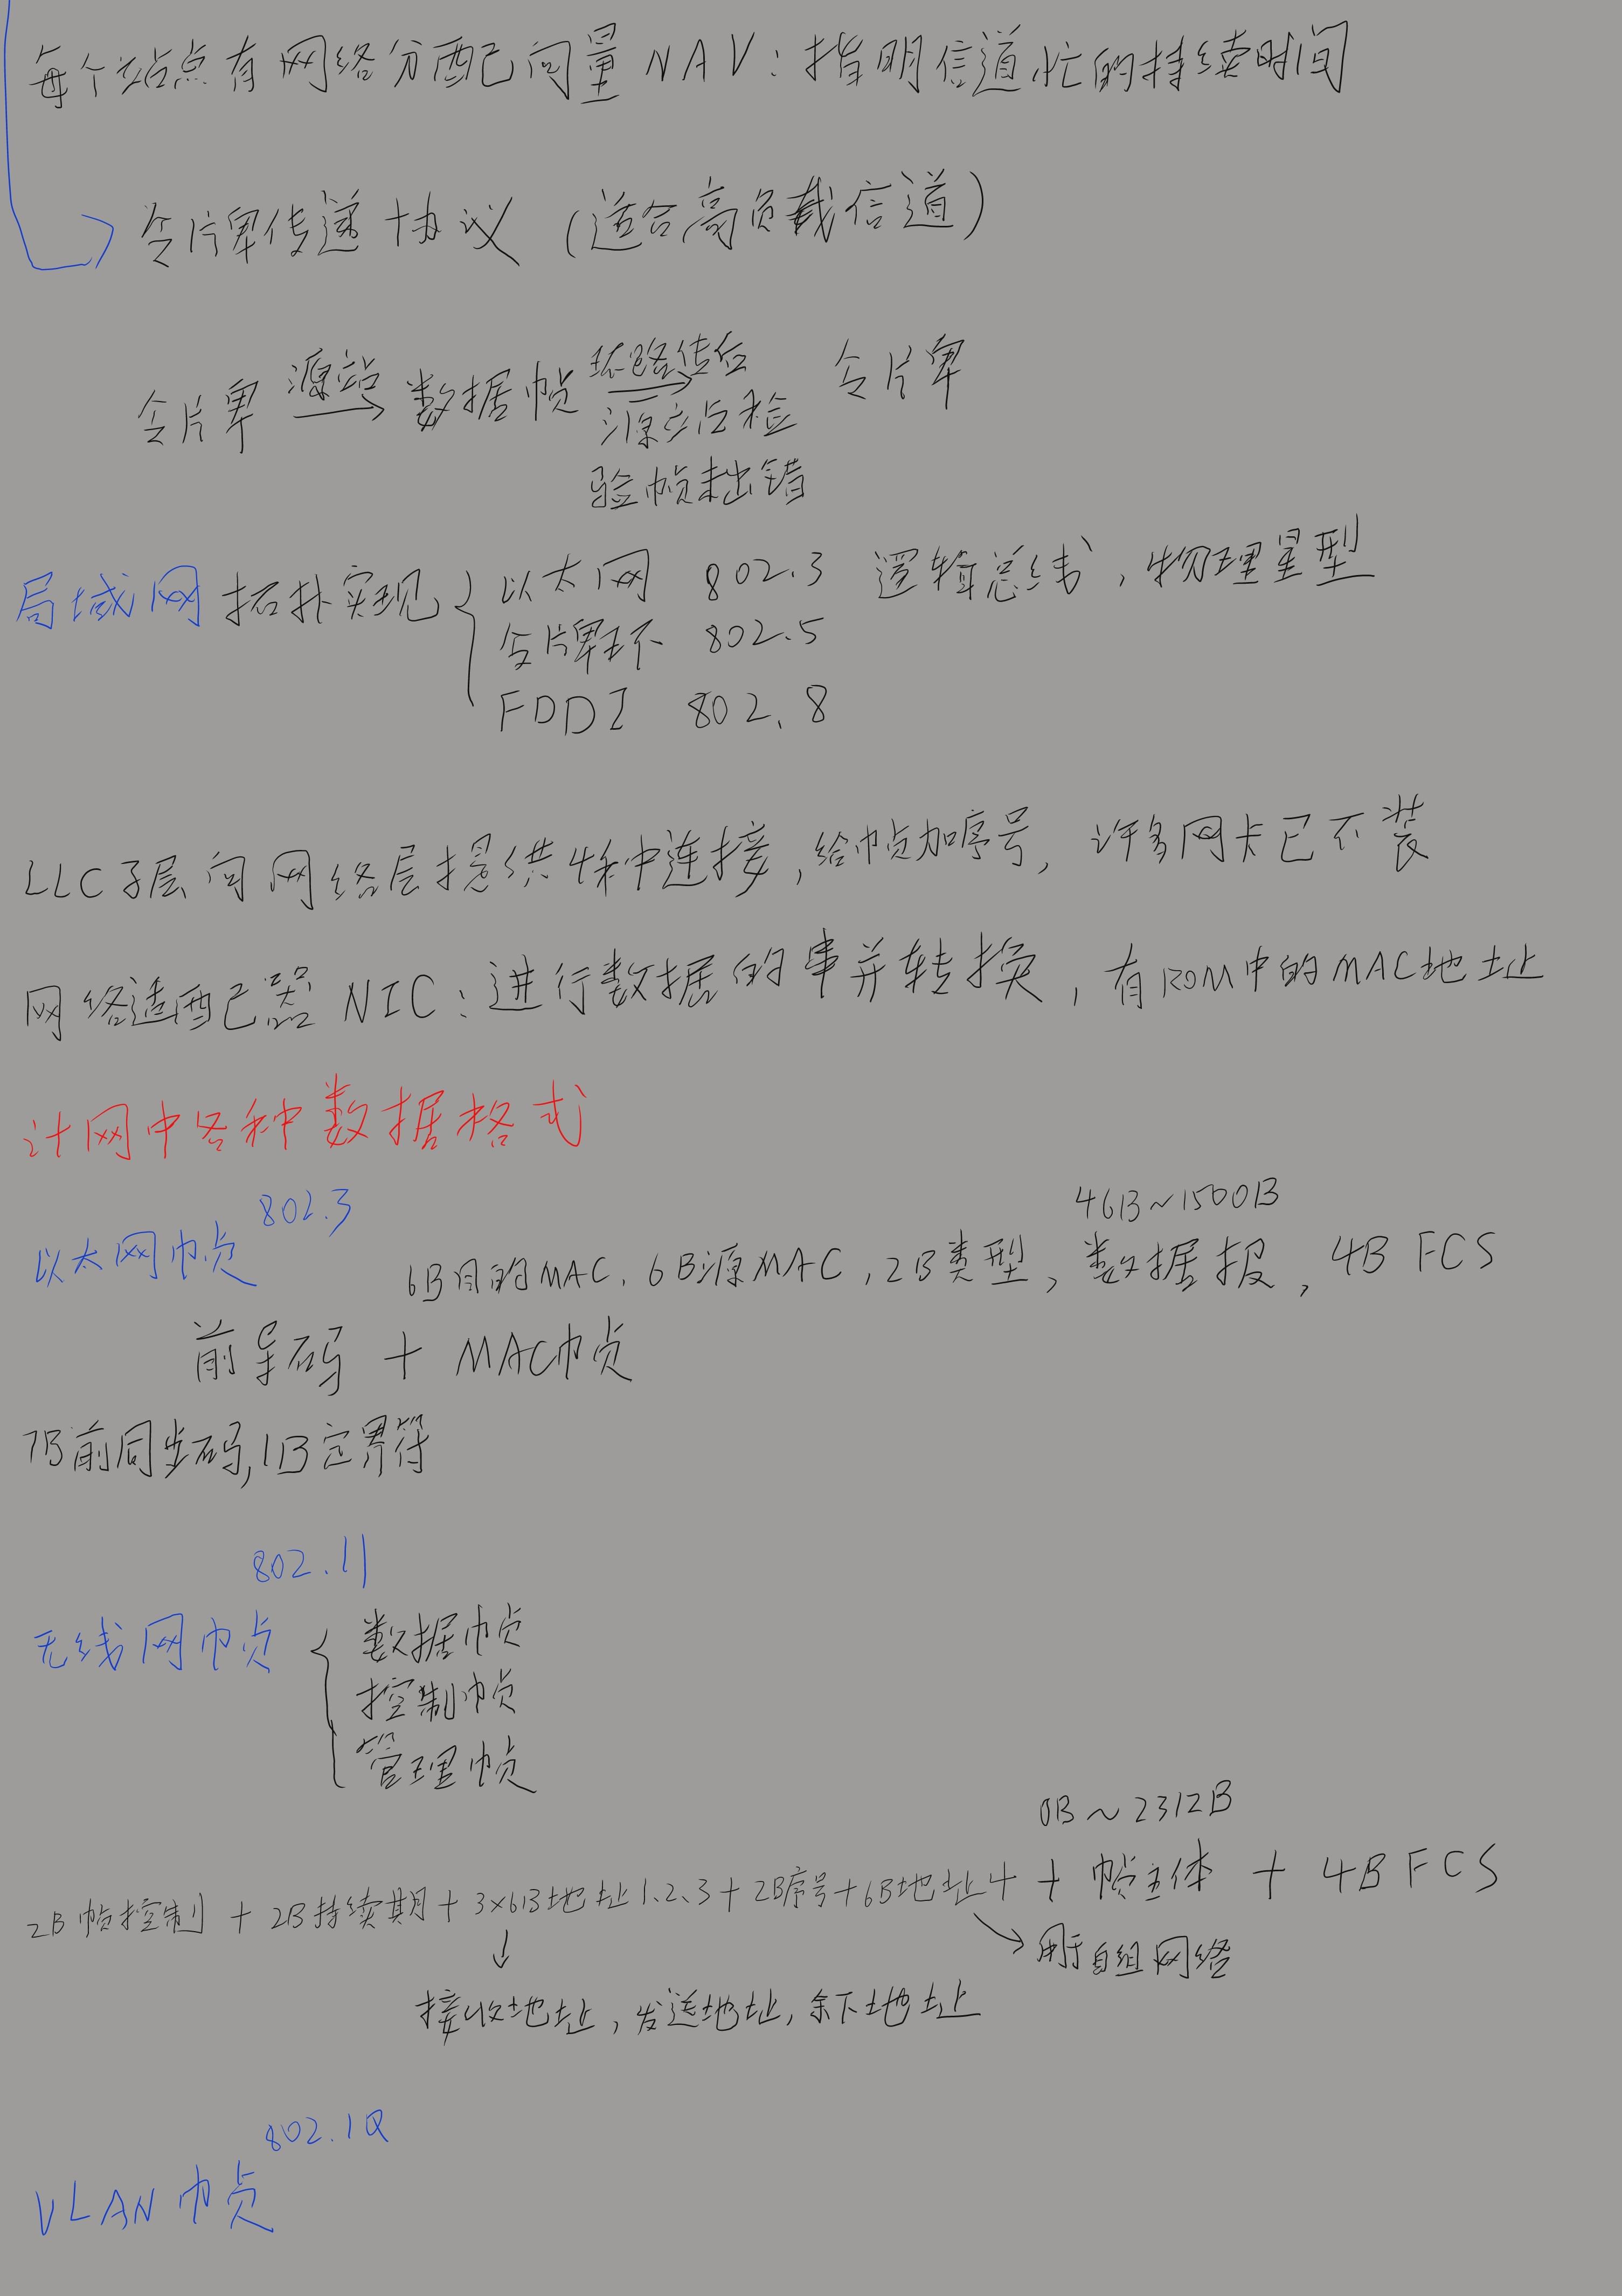 每个站点有网络分配向量NAV：指明信道忙的持续时间
令牌传递协议（适合高负载信道）
令牌 源站→ 数据帧 环路传后→ 令牌
源站后检
验帧未出错
局域网拓扑实现 { 以太网 802.3 逻辑总线，物理星型
令牌环 802.5
FDDI 802.8
LLC子层向网络层提供4种连接，给帧加序号，许多网卡已不装
网络适配器NIC：进行数据的串并转换，有ROM中的MAC地址
计网中各种数据格式
以太网帧 802.3
46B~1500B
6B目的MAC，6B源MAC，2B类型，数据报，4B FCS
前导码 + MAC帧
7B前同步码，1B定界符
802.11
无线网帧 { 数据帧
控制帧
管理帧
0B~2312B
2B帧控制 + 2B持续期 + 3×6B地址1、2、3 + 2B序号 + 6B地址4 + 帧主体 + 4B FCS
↓
→用于自组网络
接收地址，发送地址，余下地址
802.1Q
VLAN帧